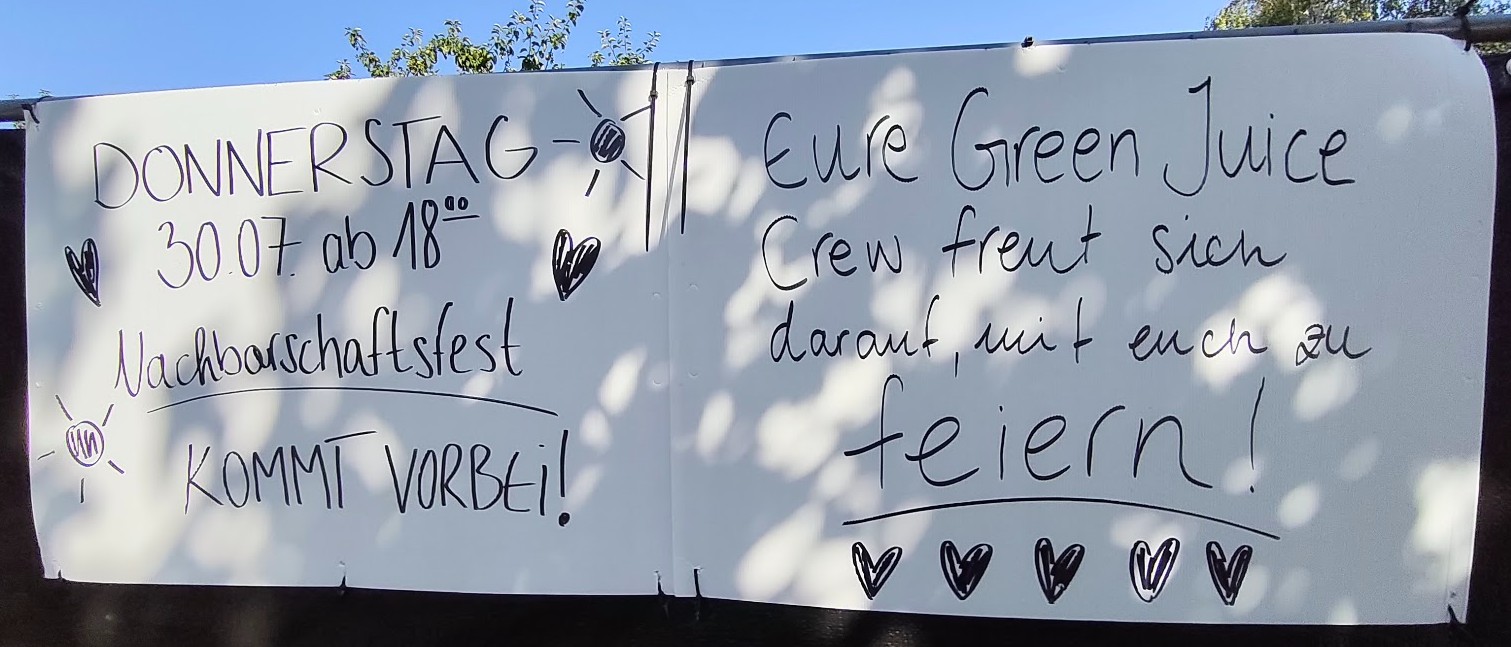 DONNERSTAG
30.07. ab 18⁰⁰
Nachbarschaftsfest
KOMMT VORBEi!
Eure Green Juice
Crew freut sich
darauf, mit euch zu
feiern!